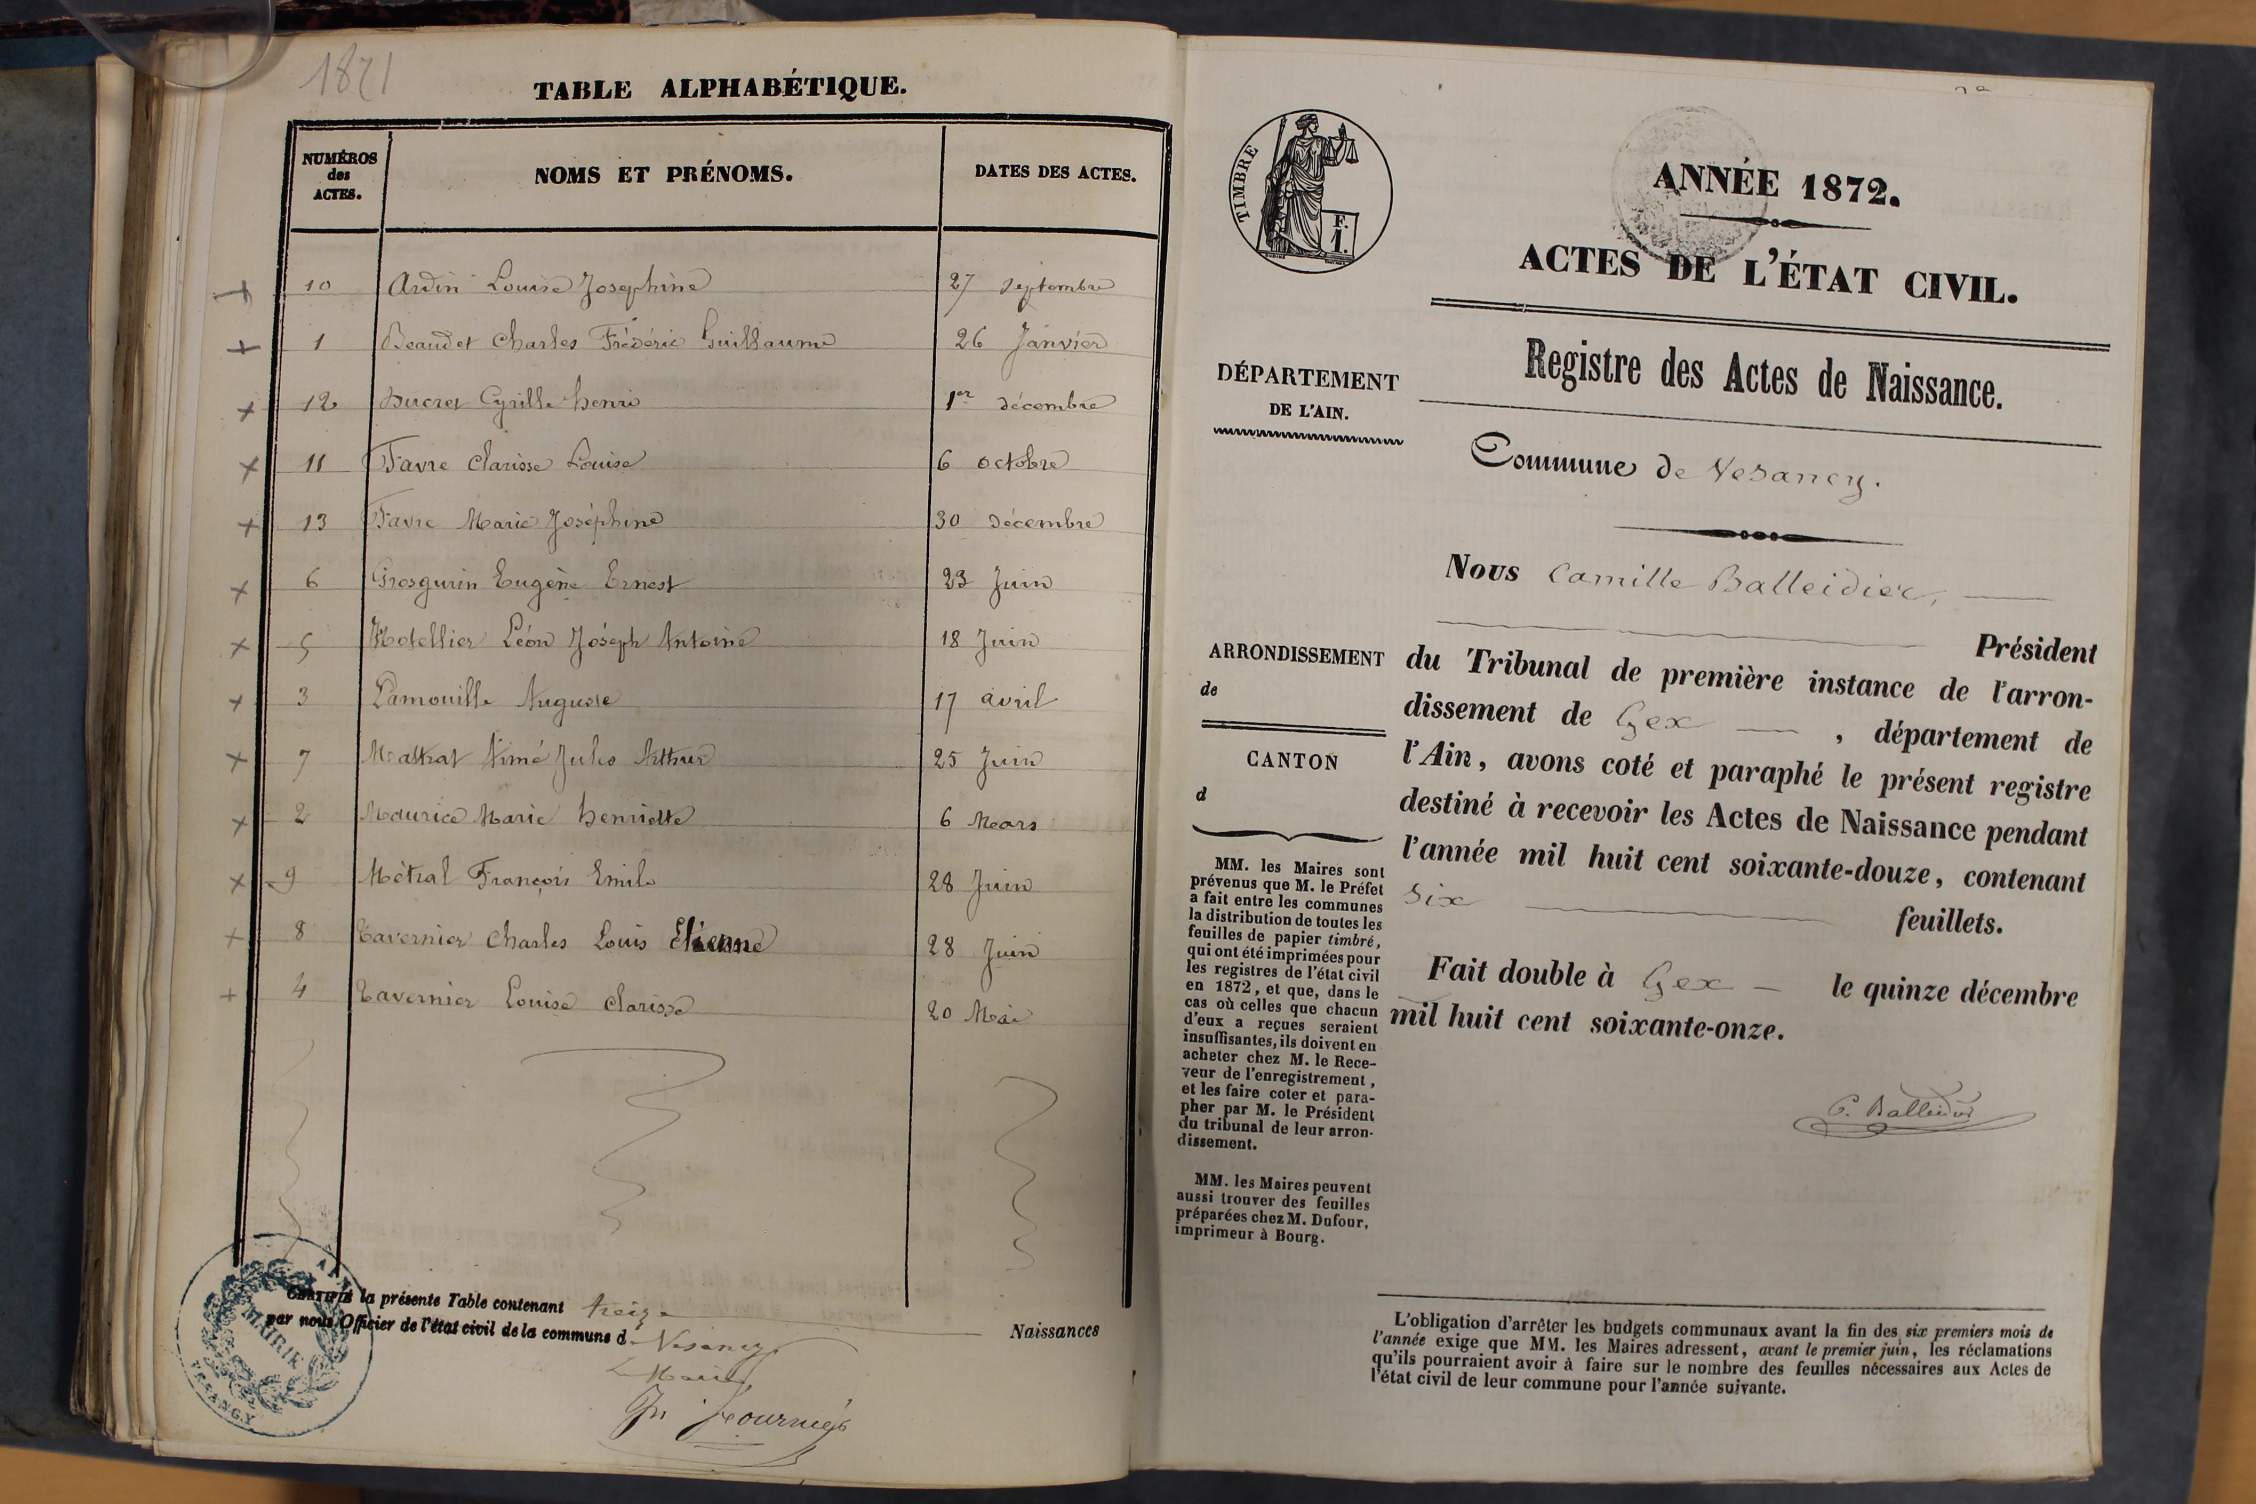 1871
TABLE ALPHABÉTIQUE.
NUMÉROS des ACTES. NOMS ET PRÉNOMS. DATES DES ACTES.
10 Ardin Louise Joséphine 27 septembre
1 Beaudet Charles Frédéric Guillaume 26 Janvier
12 Ducret Cyrille henri 1er décembre
11 Favre Clarisse Louise 6 octobre
13 Favre Marie Joséphine 30 décembre
6 Grosgurin Eugène Ernest 23 Juin
5 Hotellier Léon Joseph Antoine 18 Juin
3 Lamouille Auguste 17 avril
7 Mathat Aimé Jules Arthur 25 Juin
2 Maurice Marie henriette 6 Mars
9 Métral François Emile 28 Juin
8 Tavernier Charles Louis Etienne 28 Juin
4 Tavernier Louise Clarisse 20 Mai
CERTIFIÉ la présente Table contenant treize Naissances
par nous Officier de l'état civil de la commune d Vesancy.
Le Maire
MAIRIE
VESANCY
TIMBRE
F.
1.
ANNÉE 1872.
ACTES DE L'ÉTAT CIVIL.
Registre des Actes de Naissance.
DÉPARTEMENT
DE L'AIN.
Commune de Vesancy.
Nous Camille Balleidier,
Président
ARRONDISSEMENT
de
CANTON
d
du Tribunal de première instance de l'arron-
dissement de Gex , département de
l'Ain, avons coté et paraphé le présent registre
destiné à recevoir les Actes de Naissance pendant
l'année mil huit cent soixante-douze, contenant
six feuillets.
Fait double à Gex le quinze décembre
mil huit cent soixante-onze.
C. Balleidier
MM. les Maires sont
prévenus que M. le Préfet
a fait entre les communes
la distribution de toutes les
feuilles de papier timbré,
qui ont été imprimées pour
les registres de l'état civil
en 1872, et que, dans le
cas où celles que chacun
d'eux a reçues seraient
insuffisantes, ils doivent en
acheter chez M. le Rece-
veur de l'enregistrement,
et les faire coter et para-
pher par M. le Président
du tribunal de leur arron-
dissement.
MM. les Maires peuvent
aussi trouver des feuilles
préparées chez M. Dufour,
imprimeur à Bourg.
L'obligation d'arrêter les budgets communaux avant la fin des six premiers mois de
l'année exige que MM. les Maires adressent, avant le premier juin, les réclamations
qu'ils pourraient avoir à faire sur le nombre des feuilles nécessaires aux Actes de
l'état civil de leur commune pour l'année suivante.